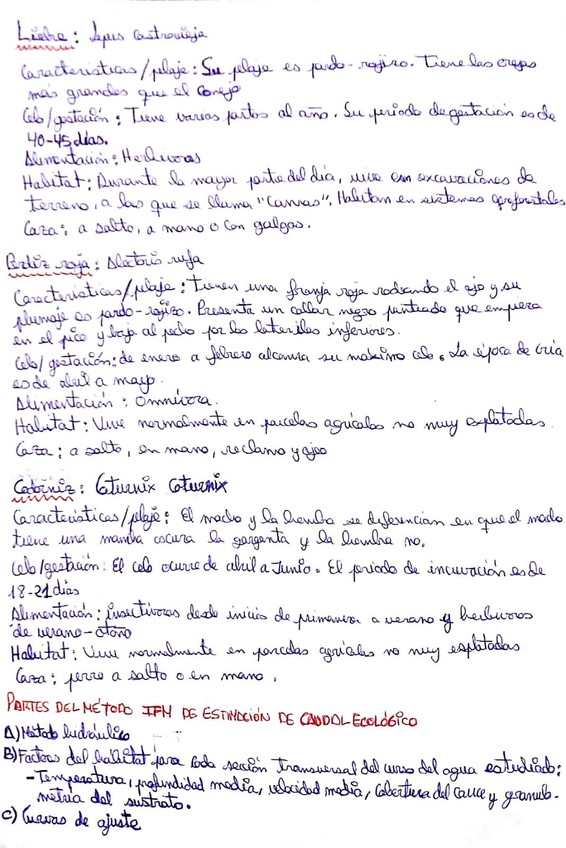 Liebre: Lepus Castroviejo
Características/pelaje: Su pelaje es pardo-rojizo. Tiene las orejas
más grandes que el conejo
Celo/gestación: Tiene varios partos al año. Su periodo de gestación es de
40-45 días.
Alimentación: Herbívoros
Habitat: Durante la mayor parte del día, vive en excavaciones de
terreno, a las que se llama "Camas". Habitan en sistemas agroforestales
Caza: a salto, a mano o con galgos.
Perdiz roja: Alectoris rufa
Características/pelaje: Tienen una franja roja rodeando el ojo y su
plumaje es pardo-rojizo. Presenta un collar negro punteado que empieza
en el pico y baja al pecho por los laterales inferiores.
Celo/gestación: de enero a febrero alcanza su máximo celo. La época de cría
es de abril a mayo.
Alimentación: Omnívora.
Habitat: Vive normalmente en parcelas agrícolas no muy explotadas
Caza: a salto, en mano, reclamo y ojeo
Codorniz: Coturnix Coturnix
Características/pelaje: El macho y la hembra se diferencian en que el macho
tiene una mancha oscura la garganta y la hembra no.
Celo/gestación: El celo ocurre de abril a Junio. El periodo de incuvación es de
18-21 días
Alimentación: insectívoros desde inicios de primavera a verano y herbívoros
de verano-otoño
Habitat: Vive normalmente en parcelas agrícolas no muy explotadas
Caza: perro a salto o en mano.
PARTES DEL MÉTODO IFM DE ESTIMACIÓN DE CAUDAL ECOLÓGICO
A) Método hidráulico
B) Factores del habitat para cada sección transversal del curso del agua estudiado:
- Temperatura, profundidad media, velocidad media, cobertura del cauce y granulo-
metría del sustrato.
C) Curvas de ajuste